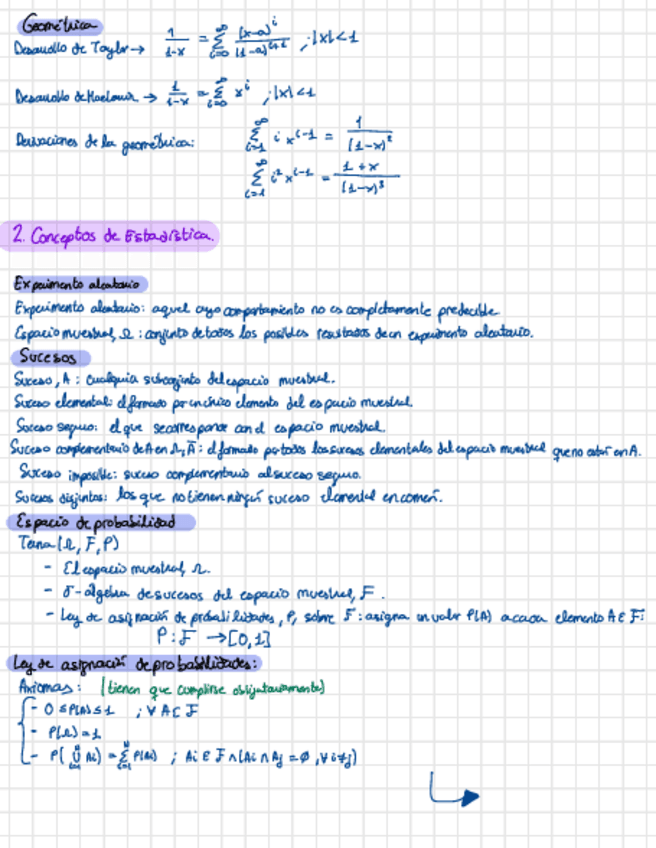 Geométrica
Desarrollo de Taylor → 1/(1-x) = ∑_{i=0}^{∞} (x-a)^i/(1-a)^{i+1} ; |x|<1
Desarrollo de Maclaurin → 1/(1-x) = ∑_{i=0}^{∞} x^i ; |x|<1
Derivaciones de la geométrica: ∑_{i=1}^{∞} i x^{i-1} = 1/(1-x)^2
∑_{i=1}^{∞} i^2 x^{i-1} = (1+x)/(1-x)^3
2. Conceptos de Estadística.
Experimento aleatorio
Experimento aleatorio: aquel cuyo comportamiento no es completamente predecible.
Espacio muestral, Ω : conjunto de todos los posibles resultados de un experimento aleatorio.
Sucesos
Suceso, A : cualquier subconjunto del espacio muestral.
Suceso elemental: el formado por un único elemento del espacio muestral.
Suceso seguro: el que se corresponde con el espacio muestral.
Suceso complementario de A en Ω, Ā : el formado por todos los sucesos elementales del espacio muestral que no están en A.
Suceso imposible: suceso complementario al suceso seguro.
Sucesos disjuntos: los que no tienen ningún suceso elemental en común.
Espacio de probabilidad
Terna (Ω, F, P)
- El espacio muestral, Ω.
- σ-álgebra de sucesos del espacio muestral, F.
- Ley de asignación de probabilidades, P, sobre F : asigna un valor P(A) a cada elemento A ∈ F:
P : F → [0,1]
Ley de asignación de probabilidades:
Axiomas: (tienen que cumplirse obligatoriamente)
- 0 ≤ P(A) ≤ 1 ; ∀ A ⊂ F
- P(Ω) = 1
- P(∪ Ai) = ∑ P(Ai) ; Ai ∈ F ∧ (Ai ∩ Aj = ∅, ∀ i≠j)